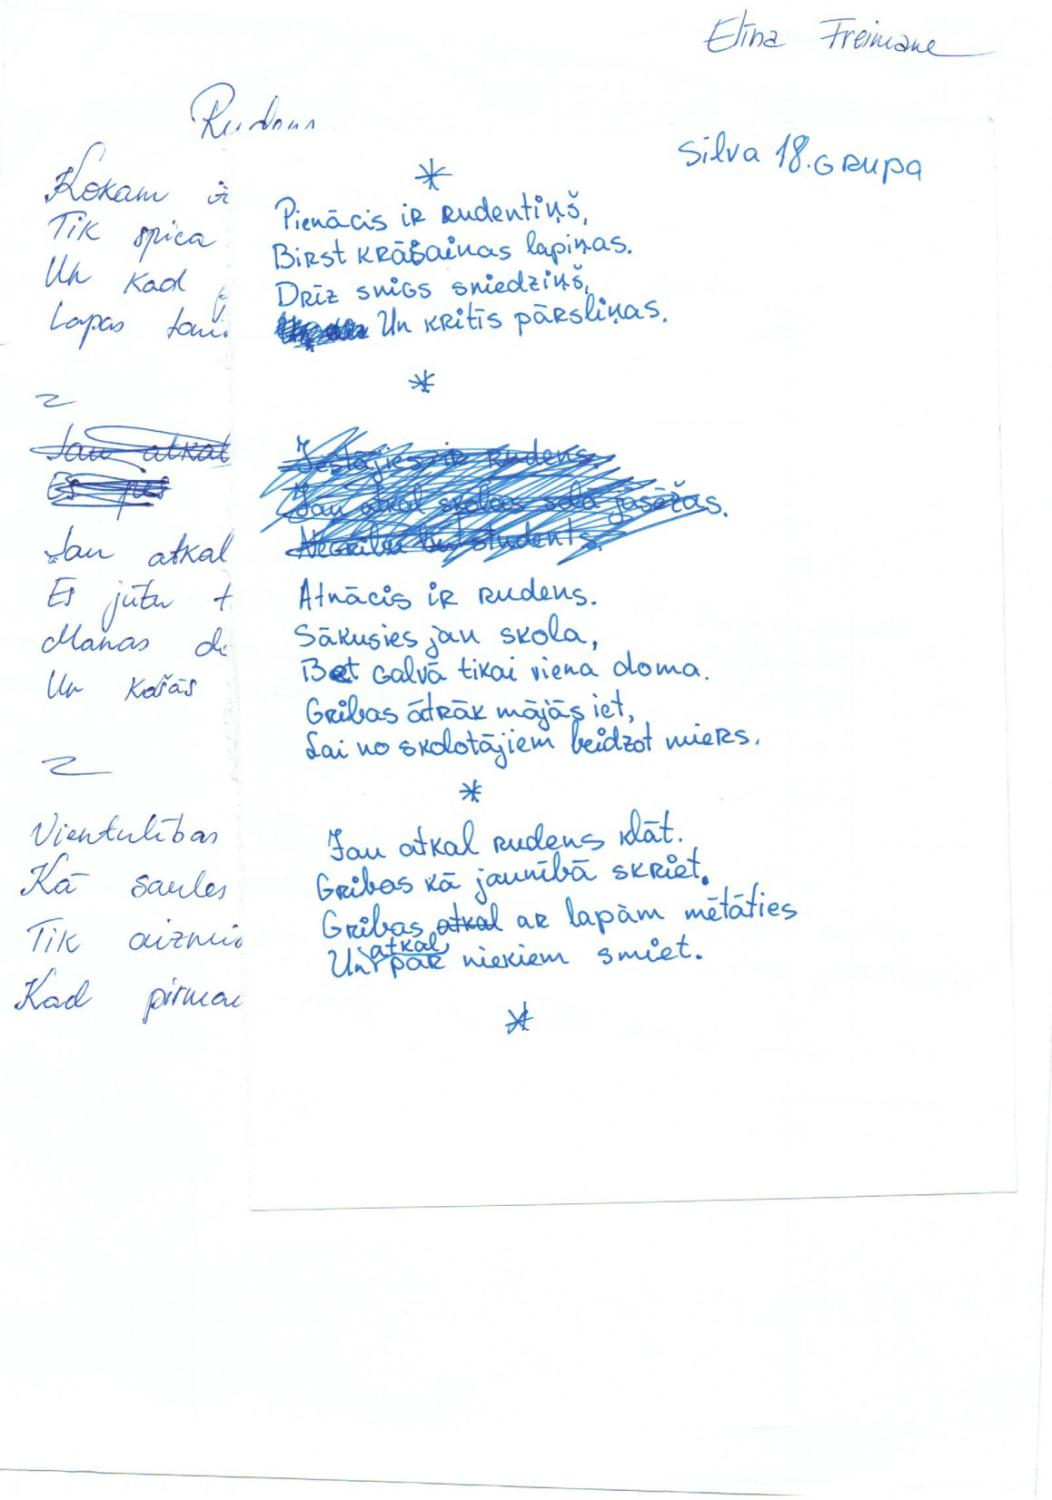 Elīna Freimane
Rudens
Kokam
Tik spica
Un kad
Lapas
Jau atkal
Es
Jau atkal
Es jūtu
Manas
Un košās
Vientulības
Kā saules
Tik
Kad
Silva 18.GRUPA
Pienācis ir Rudentiņš,
Birst krāšainas lapiņas.
Drīz snigs sniedziņš,
Un kritīs pārsliņas.
Iestājies ir Rudens.
Jau atkal skolas solā jāsēžas.
students.
Atnācis ir Rudens.
Sākusies jau skola,
Bet galvā tikai viena doma.
Gribas ātrāk mājās iet,
Lai no skolotājiem beidzot miers.
Jau atkal rudens klāt.
Gribas kā jaunībā skriet.
Gribas atkal ar lapām mētāties
Un atkal par niekiem smiet.